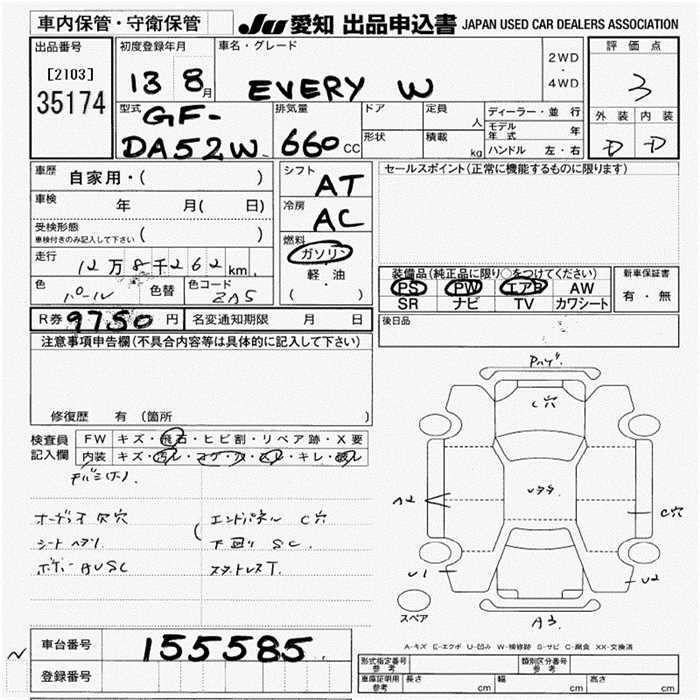 車内保管・守衛保管
JU 愛知 出品申込書 JAPAN USED CAR DEALERS ASSOCIATION
出品番号
[2103]
35174
初度登録年月
13 8月
車名・グレード
EVERY W
2WD
・
4WD
評価点
3
外装 内装
D D
型式
GF-
DA52W
排気量
660 CC
ドア
定員
人
形状
積載
kg
ディーラー・並行
モデル年式 年
ハンドル 左・右
車歴
自家用・( )
車検
年 月( 日)
受検形態
車検付きのみ記入して下さい ( )
走行
12万8千262km
色
パール
色替
色コード
ZA5
シフト
AT
冷房
AC
燃料
ガソリン
・
軽・油
( )
セールスポイント(正常に機能するものに限ります)
装備品(純正品に限り○をつけてください)
PS PW エアB AW
SR ナビ TV カワシート
新車保証書
有・無
R券 9750円 名変通知期限 月 日
後日品
注意事項申告欄(不具合内容等は具体的に記入して下さい)
修復歴 有(箇所
検査員
記入欄
FW キズ・飛石・ヒビ割・リペア跡・X要
内装 キズ・汚レ・コゲ・穴・スレ・キレ・破レ
オーディオ欠穴
シートヘタリ
ボディーAUSC
エンドパネル C穴
下廻り SC.
スタットレスT.
C穴
A2
C穴
U1
U2
A3
スペア
A-キズ E-エクボ U-凹み W-補修跡 S-サビ C-腐食 XX-交換済
車台番号
155585
登録番号
型式指定番号
参考
類別区分番号
参考
車庫証明用
参考
長さ cm 幅 cm 高さ cm